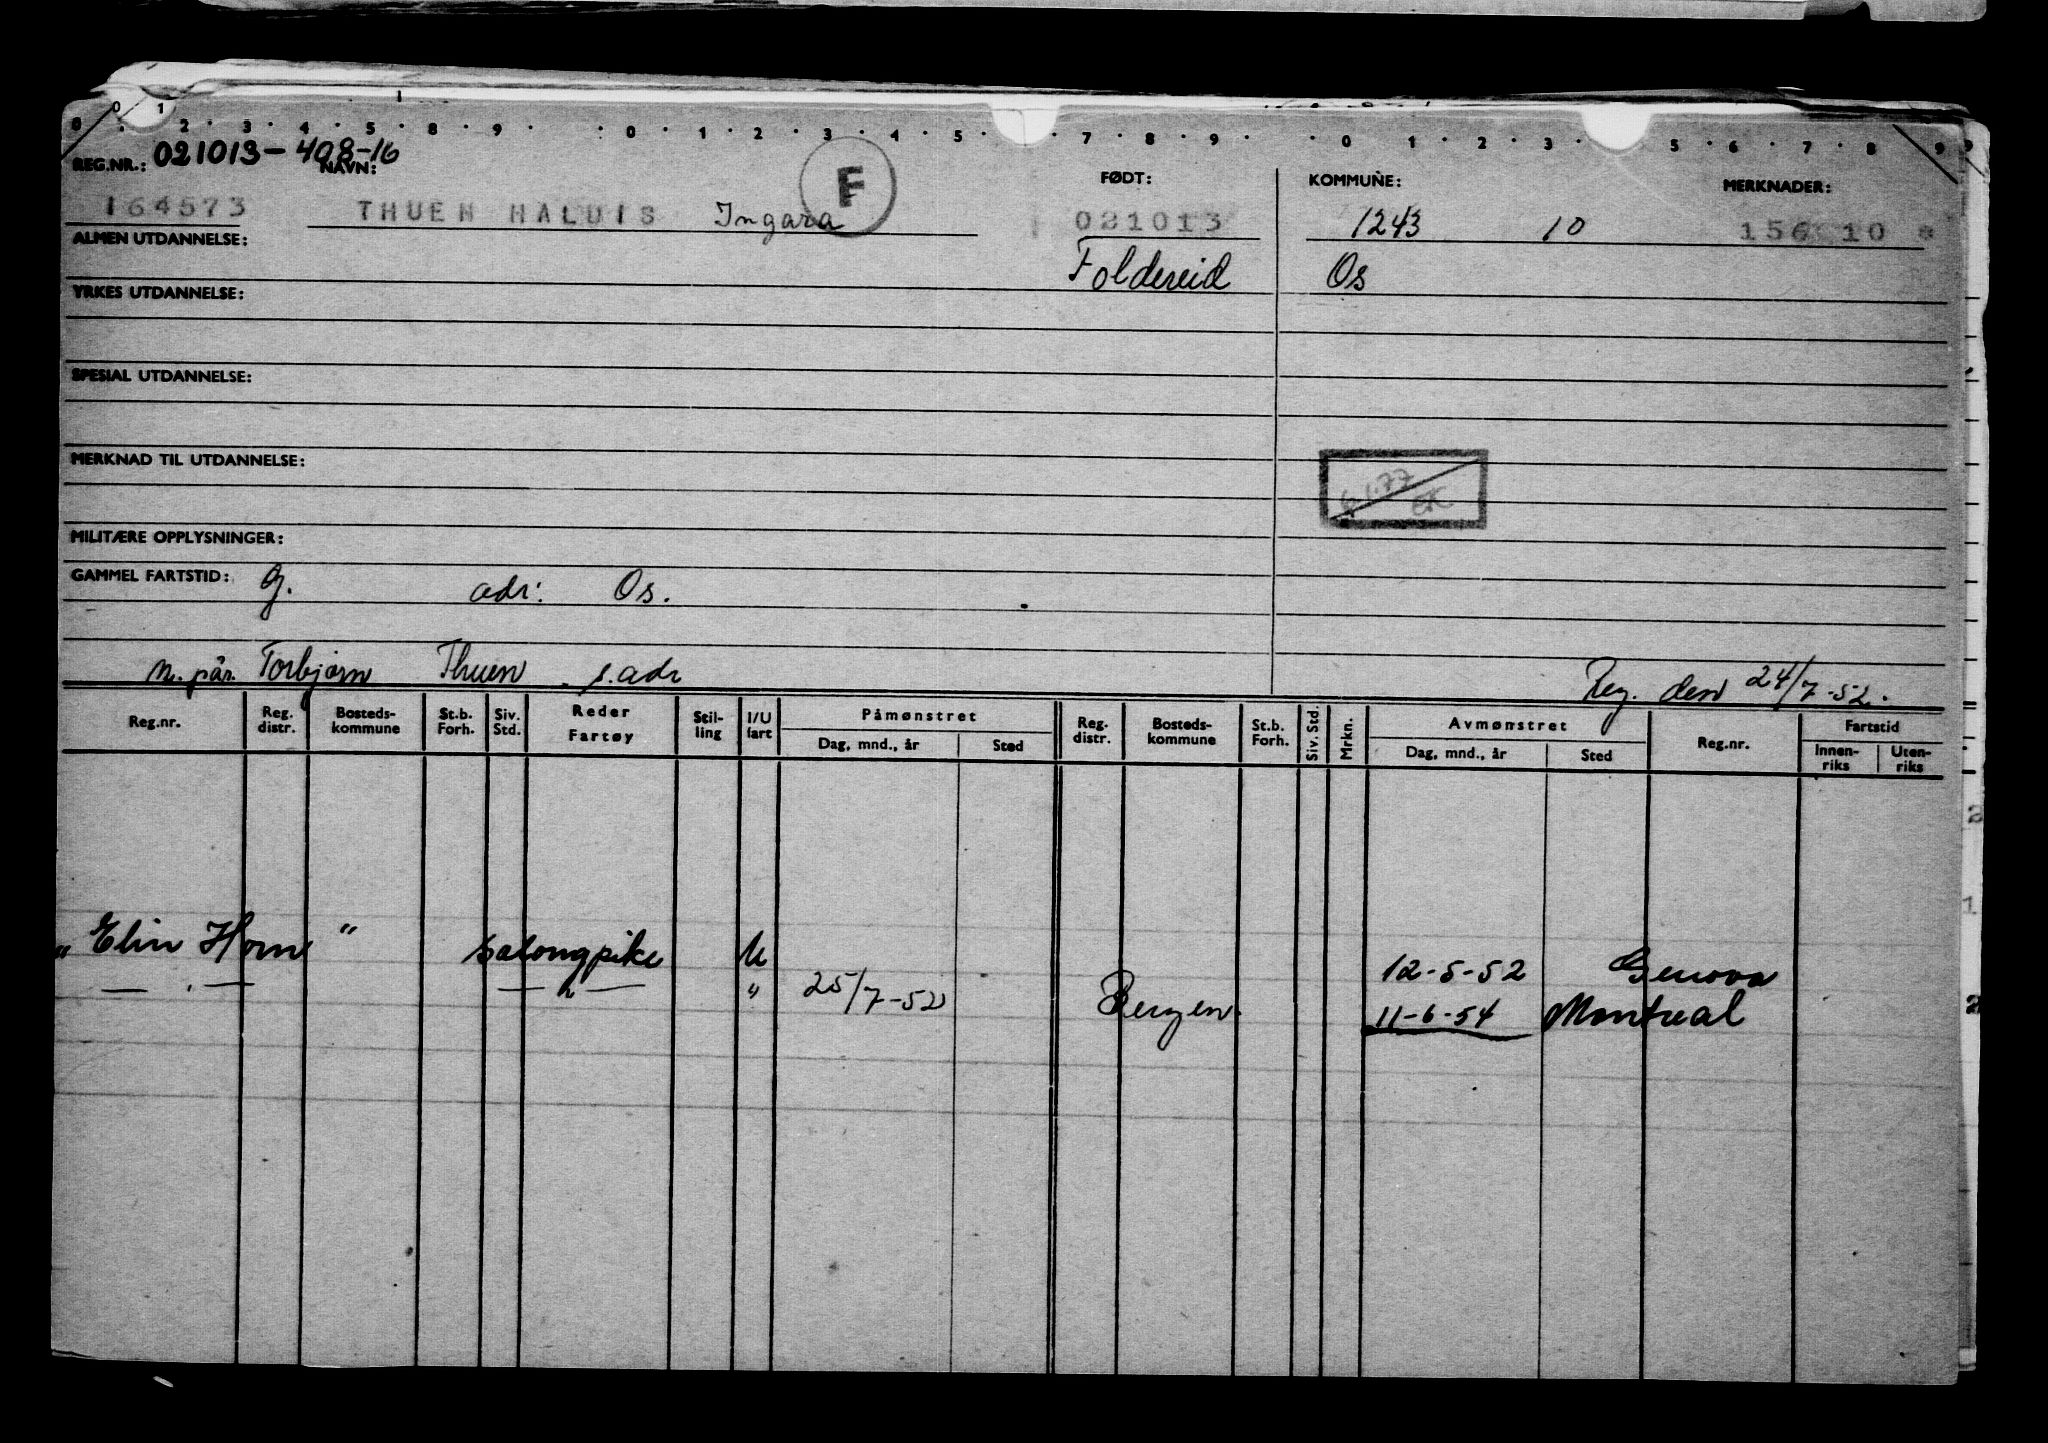 0 1 2 3 4 5 8 9 0 1 2 3 4 5 7 8 9 0 1 2 3 5 6 7 8 9
REG.NR.: 021013-408-16 NAVN: F FØDT: KOMMUNE: MERKNADER:
164573 THUEN HALDIS Ingara 021013 1243 10 156 10 *
ALMEN UTDANNELSE: Foldereid Os
YRKES UTDANNELSE:
SPESIAL UTDANNELSE:
MERKNAD TIL UTDANNELSE:
MILITÆRE OPPLYSNINGER:
GAMMEL FARTSTID: G. adr: Os.
n. pår. Torbjørn Thuen s. adr Reg. den 24/7-52.
Reg.nr. Reg. distr. Bosteds-kommune St.b. Forh. Siv. Std. Reder Fartøy Stil-ling I/U fart Påmønstret Dag, mnd., år Sted Reg. distr. Bosteds-kommune St.b. Forh. Siv. Std. Mrkn. Avmønstret Dag, mnd., år Sted Reg.nr. Fartstid Innen-riks Uten-riks
" Elin Horn " salongpike U 12-5-52 Genova
— " — — " — " 25/7-52 Bergen 11-6-54 Montreal